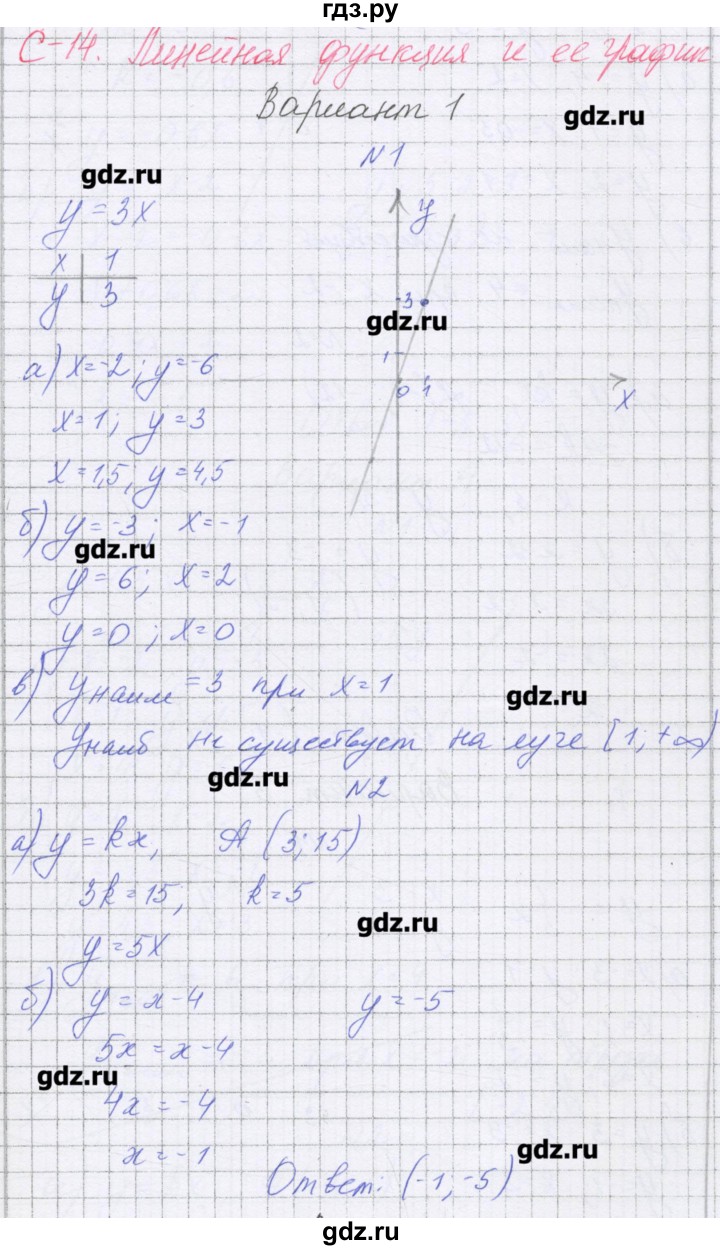 гдз.ру
С-14. Линейная функция и ее график
Вариант 1
gdz.ru
№1
gdz.ru
y = 3x
x 1
y 3
y
3
1
0 1
x
gdz.ru
а) x=-2; y=-6
x=1; y=3
x=1,5; y=4,5
б) y=-3; x=-1
gdz.ru
y=6; x=2
y=0; x=0
в) yнаим=3 при x=1
gdz.ru
yнаиб не существует на луче [1;+∞)
gdz.ru
№2
а) y=kx, A (3;15)
3k=15; k=5
gdz.ru
y=5x
б) y=x-4 y=-5
5x=x-4
gdz.ru
4x=-4
x=-1
gdz.ru
Ответ: (-1;-5)
gdz.ru